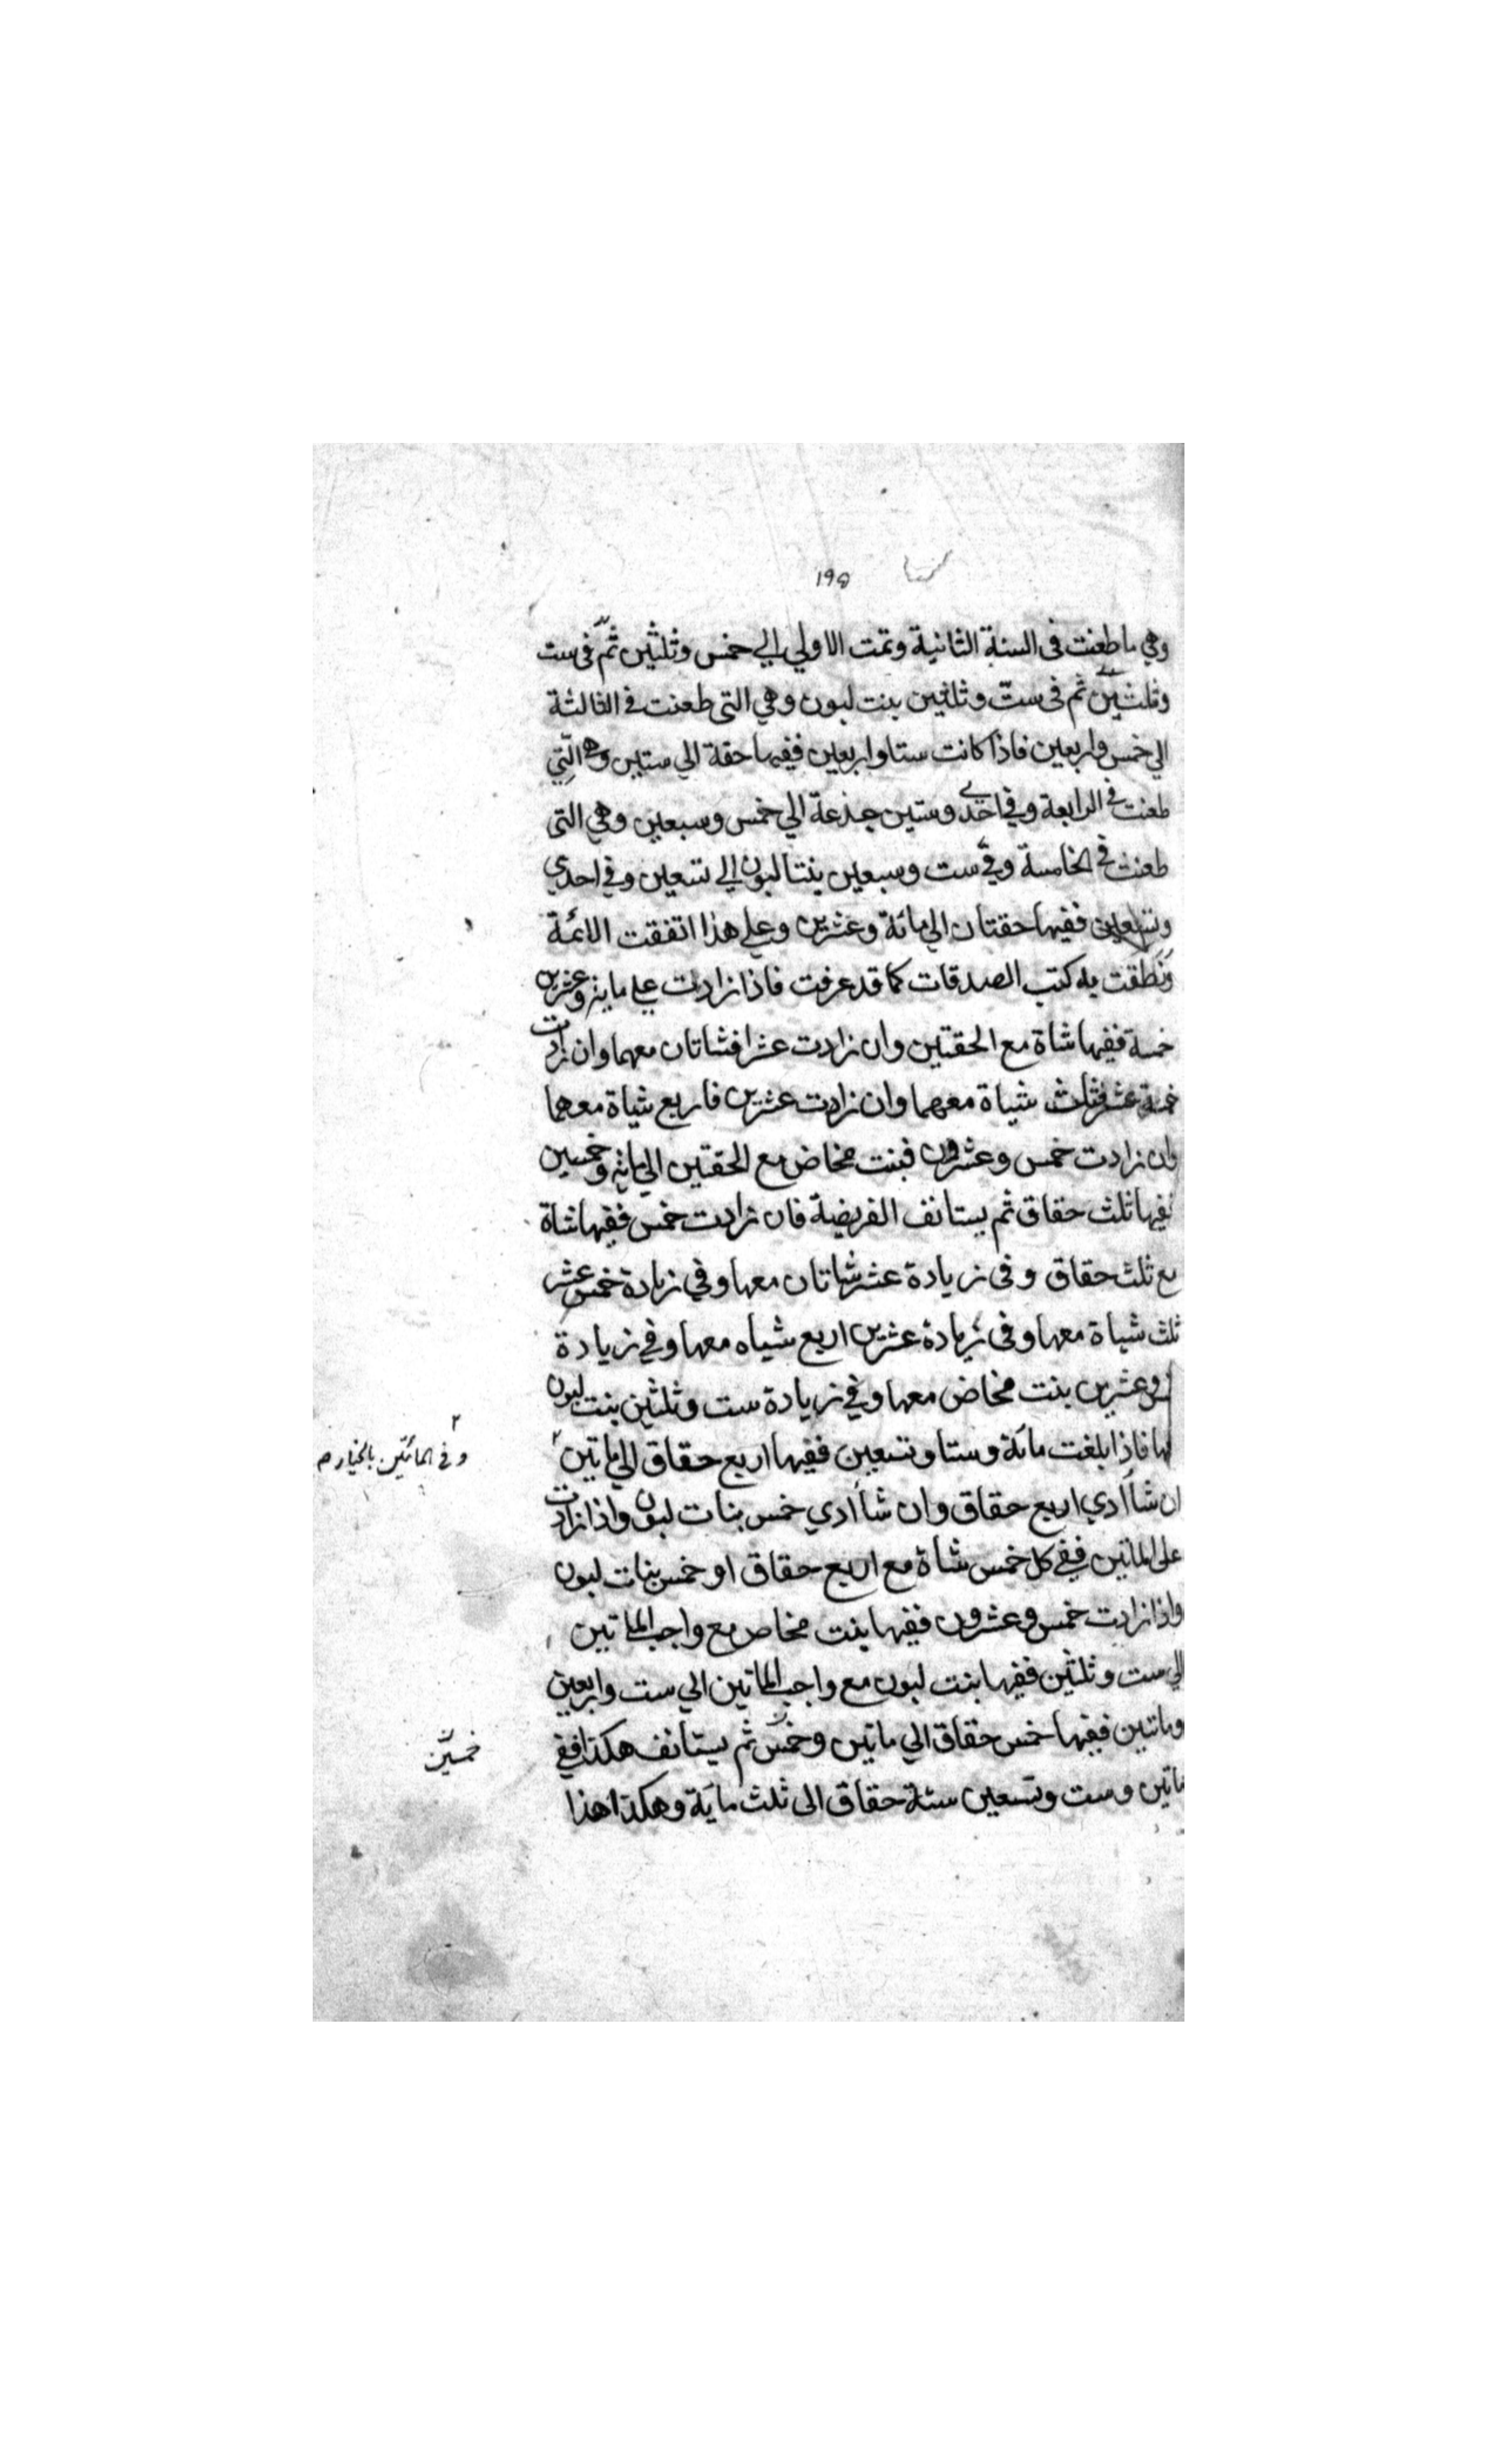 ١٩٥
وهي ما طعنت فى السنة الثانية وتمت الاولي الي خمس وثلثين ثم فى ست
وثلثين ثم فى ست وثلثين بنت لبون وهي التى طعنت فى الثالثة
الي خمس واربعين فاذا كانت ستا واربعين ففيها حقة الي ستين وهي التي
طعنت في الرابعة وفي احدي وستين جذعة الي خمس وسبعين وهي التى
طعنت في الخامسة وفي ست وسبعين بنتا لبون الي تسعين وفي احدي
وتسعين ففيها حقتان الي مائة وعشرين وعلي هذا اتفقت الائمة
ونطقت به كتب الصدقات كما قد عرفت فاذا زادت علي ماية وعشرين
خمسة ففيها شاة مع الحقتين وان زادت عشرا فشاتان معهما وان زادت
خمسة عشر فثلث شياة معهما وان زادت عشرين فاربع شياة معهما
وان زادت خمس وعشرون فبنت مخاض مع الحقتين الي مائة وخمسين
ففيها ثلث حقاق ثم يستانف الفريضة فان زادت خمس ففيها شاة
مع ثلث حقاق وفى زيادة عشر شاتان معها وفي زيادة خمس عشر
ثلث شياة معها وفى زيادة عشرين اربع شياه معها وفي زيادة
وعشرين بنت مخاض معها وفي زيادة ست وثلثين بنت لبون
فاذا بلغت مائة وستا وتسعين ففيها اربع حقاق الي ماتين ٢
٢ وفي المائتين بالخيار م
ان شاأ ادي اربع حقاق وان شاأ ادي خمس بنات لبون واذا زادت
على الماتين ففي كل خمس شاة مع اربع حقاق او خمس بنات لبون
واذا زادت خمس وعشرون ففيها بنت مخاص مع واجب الماتين
الي ست وثلثين ففيها بنت لبون مع واجب الماتين الي ست واربعين
وماتين ففيها خمس حقاق الي ماتين وخمس ثم يستأنف هكذا ففي
خمسين
ماتين وست وتسعين ستة حقاق الى ثلث ماية وهكذا هذا